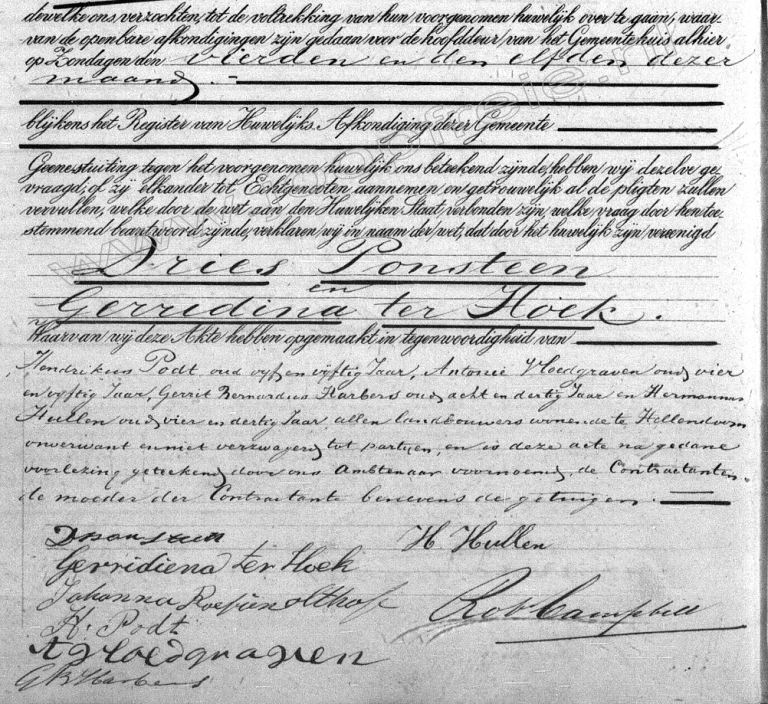 dewelke ons verzochten, tot de voltrekking van hun voorgenomen huwelijk over te gaan, waar-
van de openbare afkondigingen zijn gedaan voor de hoofddeur van het Gemeentehuis alhier
op Zondagen den vierden en den elfden dezer
maand.
blijkens het Register van Huwelijks-Afkondiging dezer Gemeente
Geene stuiting tegen het voorgenomen huwelijk ons beteekend zijnde, hebben wij dezelve ge-
vraagd, of zij elkander tot Echtgenooten aannemen en getrouwelijk al de pligten zullen
vervullen, welke door de wet aan den Huwelijken Staat verbonden zijn, welke vraag door hen toe-
stemmend beantwoord zijnde, verklaren wij in naam der wet, dat door het huwelijk zijn vereenigd
Dries Ponsteen
en
Gerredina ter Hoek.
Waarvan wij deze Akte hebben opgemaakt in tegenwoordigheid van
Hendrikus Podt, oud vijf en vijftig Jaar, Antonie Vloedgraven oud vier
en vijftig Jaar, Gerrit Bernardus Harbers oud acht en dertig Jaar en Hermannus
Hullen oud vier en dertig Jaar, allen landbouwers wonende te Hellendoorn
onverwant en niet verzwagerd tot partijen, en is deze acte na gedane
voorlezing geteekend door ons Ambtenaar voornoemd, de Contractanten
de moeder der Contractante benevens de getuigen.
D Ponsteen H. Hullen
Gerridiena ter Hoek
Johanna Olthof
Rob Campbell
H. Podt
A Vloedgraven
G B Harbers